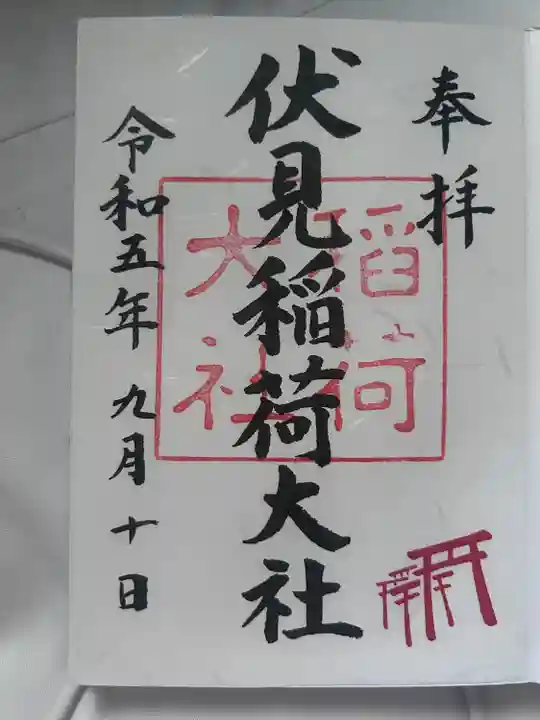 奉拝
伏見稲荷大社
稲荷
大社
令和五年九月十日